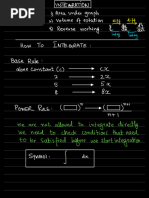 INTEGRATION
1) Area under graph
2) Volume of rotation
3) Reverse working
HOW TO INTEGRATE:
Base Rule
alone Constant (c) → cx
2 → 2x
5 → 5x
8 → 8x
POWER RES: ( )ⁿ → ( )ⁿ⁺¹
n+1
We are not allowed to integrate directly
We need to check conditions that need
to be satisfied before we start integration
Symbol: ∫ dx